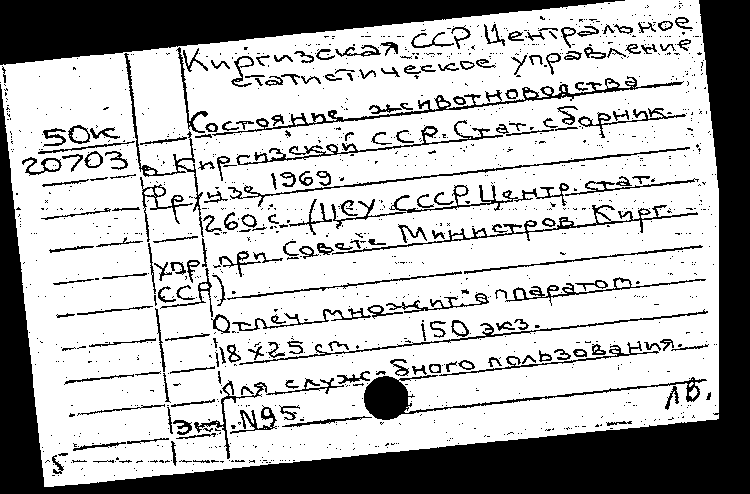 Киргизская ССР. Центральное
статистическое управление
50к
20703
Состояние животноводства
в Киргизской ССР. Стат. сборник.
Фрунзе, 1969.
260 с. (ЦСУ СССР. Центр. стат.
упр. при Совете Министров Кирг.
ССР).
Отпеч. множит. аппаратом.
18 х 25 cm. 150 экз.
Для служебного пользования.
экз. N95.
1Б.
5